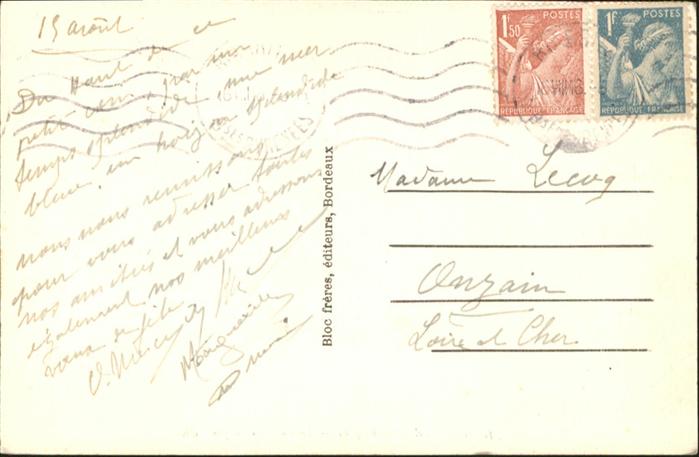 15 août
Du Haut de ce
petit coin, par un
temps splendide, une mer
bleue, un horizon splendide
nous nous réunissons
pour vous adresser toutes
nos amitiés et vous adressons
également nos meilleurs
vœux de fête
Marguerite
1F50 POSTES
RÉPUBLIQUE FRANÇAISE
1F POSTES
RÉPUBLIQUE FRANÇAISE
Bloc frères, éditeurs, Bordeaux
Madame Lecoq
Onzain
Loir et Cher